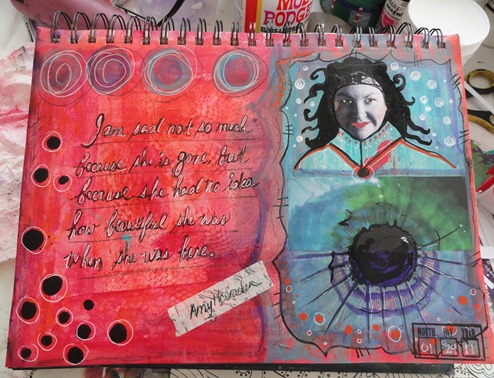 MOD
PODGE
I am sad not so much
because she is gone, but
because she had no idea
how beautiful she was
when she was here.
MONTH DAY YEAR
01 29 11